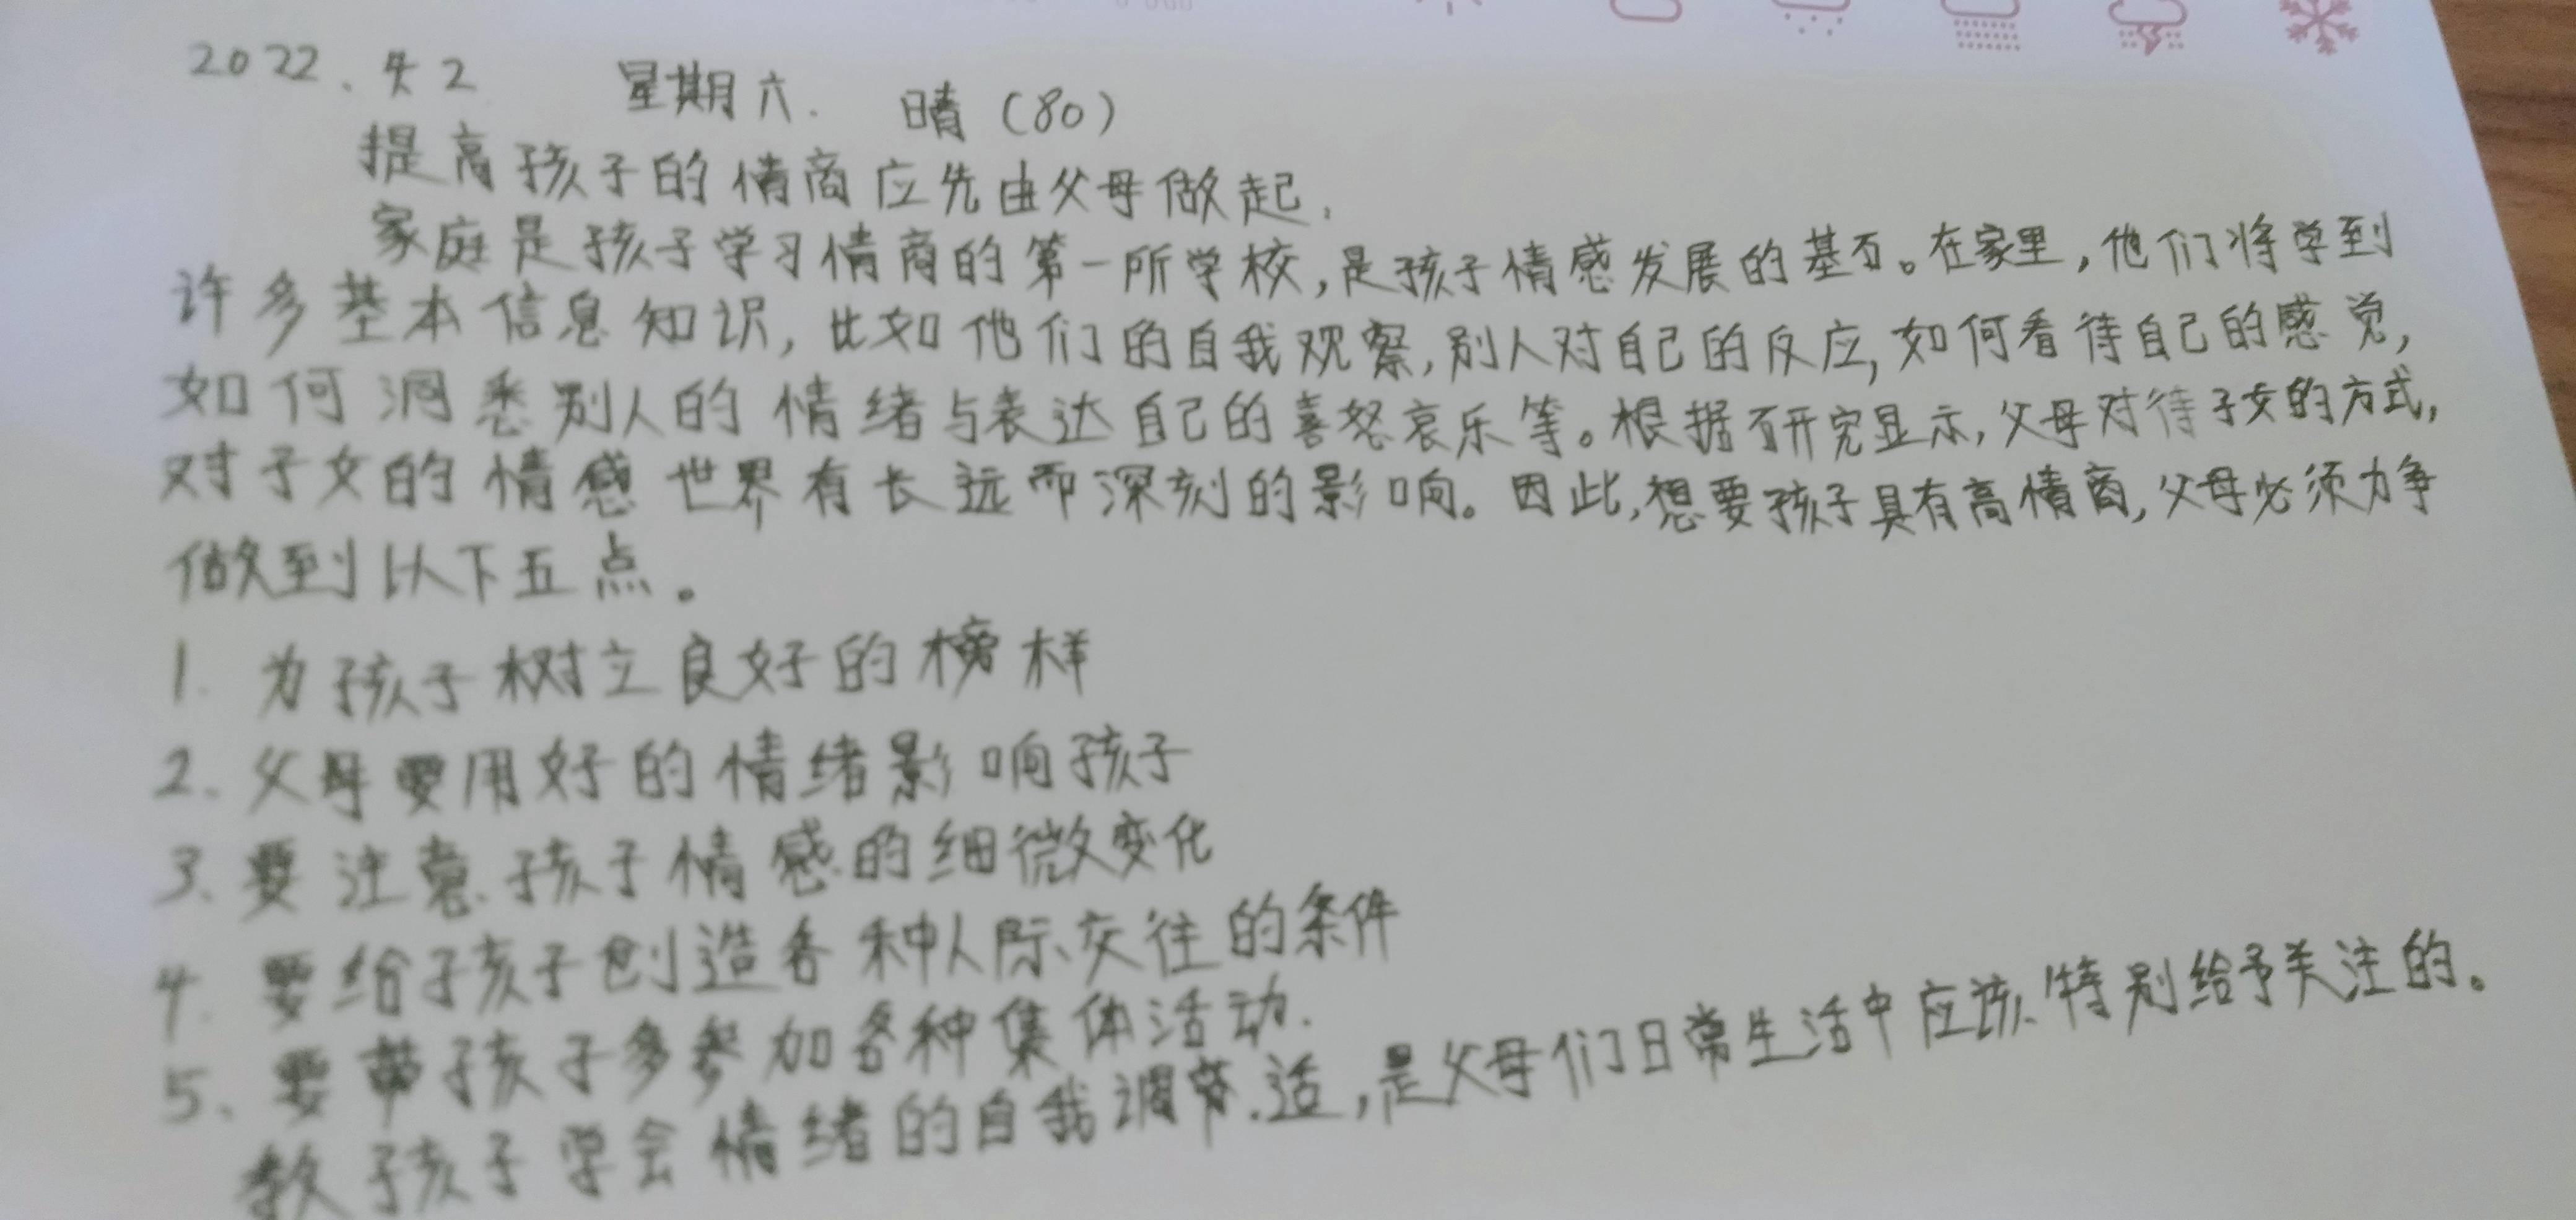 2022.4.2 星期六. 晴(80)
提高孩子的情商应先由父母做起.
家庭是孩子学习情商的第一所学校,是孩子情感发展的基石。在家里,他们将学到
许多基本信息知识,比如他们的自我观察,别人对自己的反应,如何看待自己的感觉,
如何洞悉别人的情绪与表达自己的喜怒哀乐等。根据研究显示,父母对待子女的方式,
对子女的情感世界有长远而深刻的影响。因此,想要孩子具有高情商,父母必须力争
做到以下五点。
1. 为孩子树立良好的榜样
2. 父母要用好的情绪影响孩子
3. 要注意孩子情感的细微变化
4. 要给孩子创造各种人际交往的条件
5. 要带孩子多参加各种集体活动.
教孩子学会情绪的自我调节.适,是父母们日常生活中应该特别给予关注的。